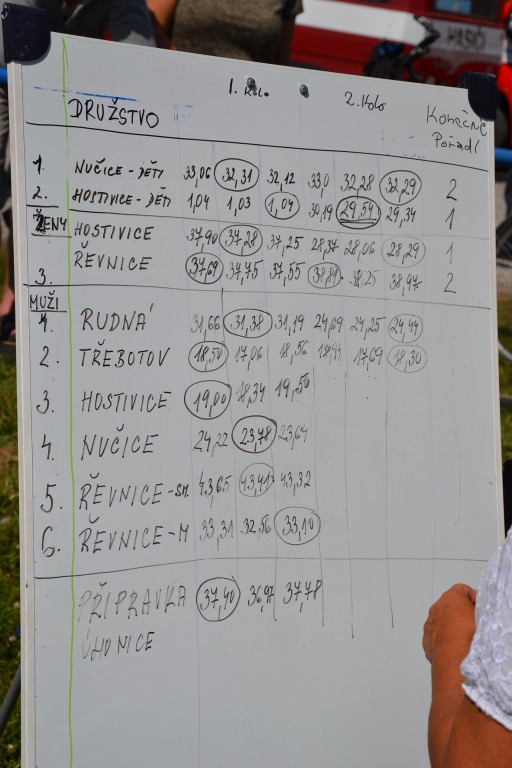 HASIČI
1. kolo 2. kolo Konečné
DRUŽSTVO Pořadí
1. NUČICE - DĚTI 33,06 32,31 32,12 33,0 32,28 32,29 2
2. HOSTIVICE - DĚTI 1,04 1,03 1,04 30,19 29,54 29,34 1
ŽENY HOSTIVICE 37,90 37,28 37,25 28,37 28,06 28,29 1
3. ŘEVNICE 37,69 37,75 37,55 38,81 38,25 38,97 2
MUŽI
1. RUDNÁ 31,66 31,38 31,19 24,69 24,25 24,44
2. TŘEBOTOV 18,50 17,06 18,56 18,94 17,69 18,30
3. HOSTIVICE 19,00 18,34 19,50
4. NUČICE 24,22 23,78 23,64
5. ŘEVNICE - SM. 43,65 43,41 43,32
6. ŘEVNICE - M 33,31 32,56 33,10
PŘÍPRAVKA 37,40 36,97 37,78
ÚHONICE